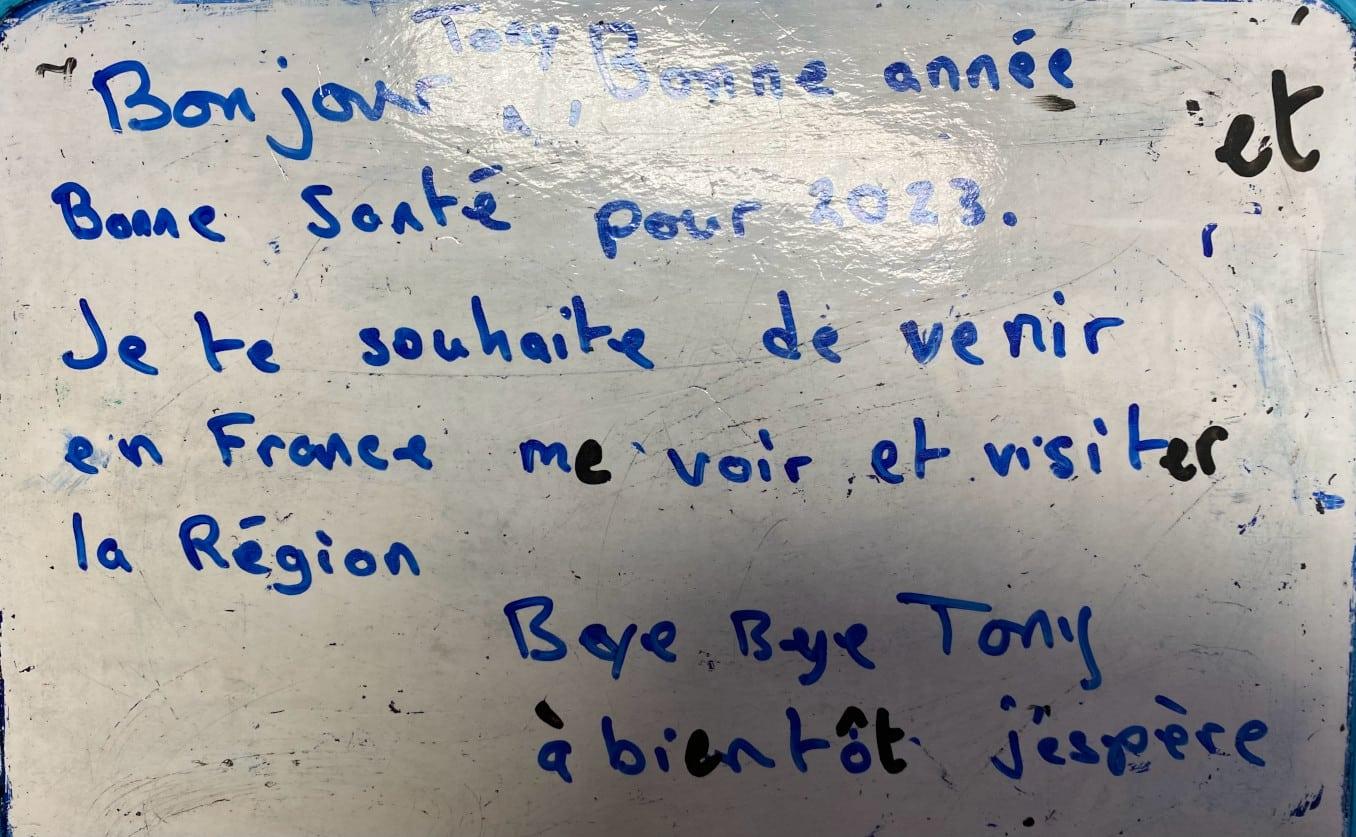 Bonjour Tony Bonne année et
Bonne Santé pour 2023.
Je te souhaite de venir
en France me voir et visiter
la Région
Beye Beye Tony
à bientôt j'espère